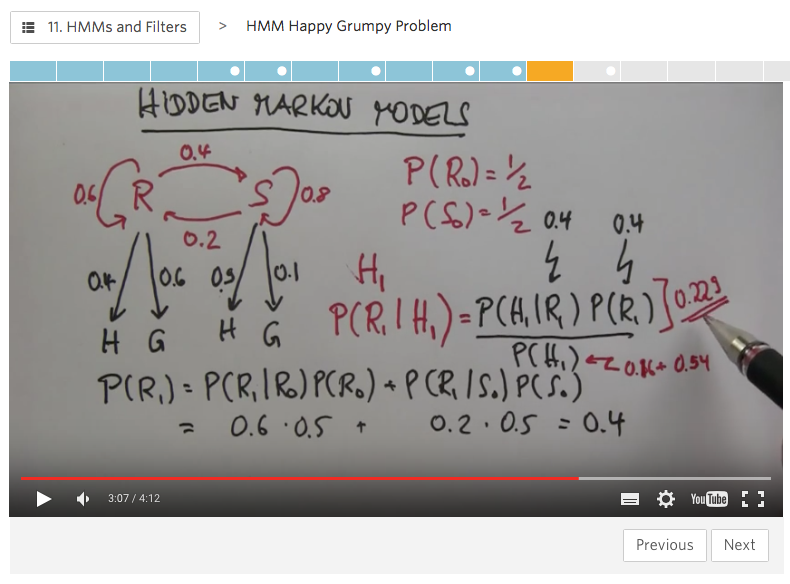 11. HMMs and Filters > HMM Happy Grumpy Problem
HIDDEN MARKOV MODELS
0.4
0.6 R S 0.8
0.2
P(R₀) = 1/2
P(S₀) = 1/2
0.4 0.4
0.4 0.6 0.9 0.1
H G H G
H₁
P(R₁|H₁) = P(H₁|R₁) P(R₁) ] 0.229
P(H₁) ← 0.16 + 0.54
P(R₁) = P(R₁|R₀)P(R₀) + P(R₁|S₀)P(S₀)
= 0.6 · 0.5 + 0.2 · 0.5 = 0.4
3:07 / 4:12
YouTube
Previous Next